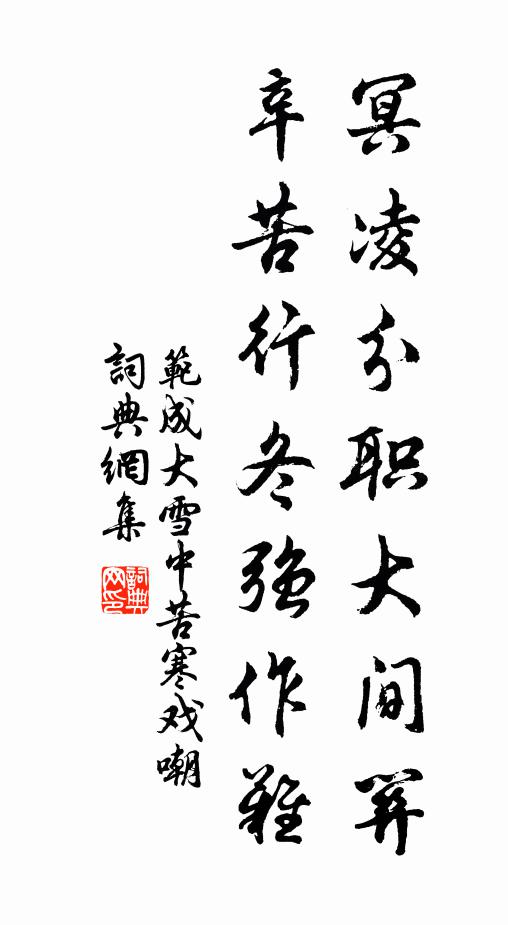 冥凌分职大间關
辛苦行冬強作難
範成大雪中苦寒戏嘲
詞典網集
詞典网印